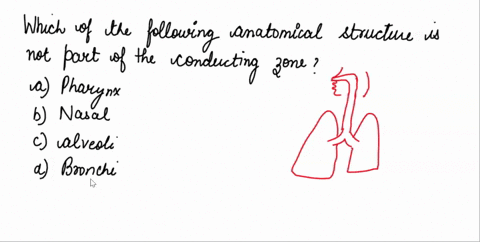 Which of the following anatomical structure is
not part of the conducting zone?
a) Pharynx
b) Nasal
c) alveoli
d) Bronchi